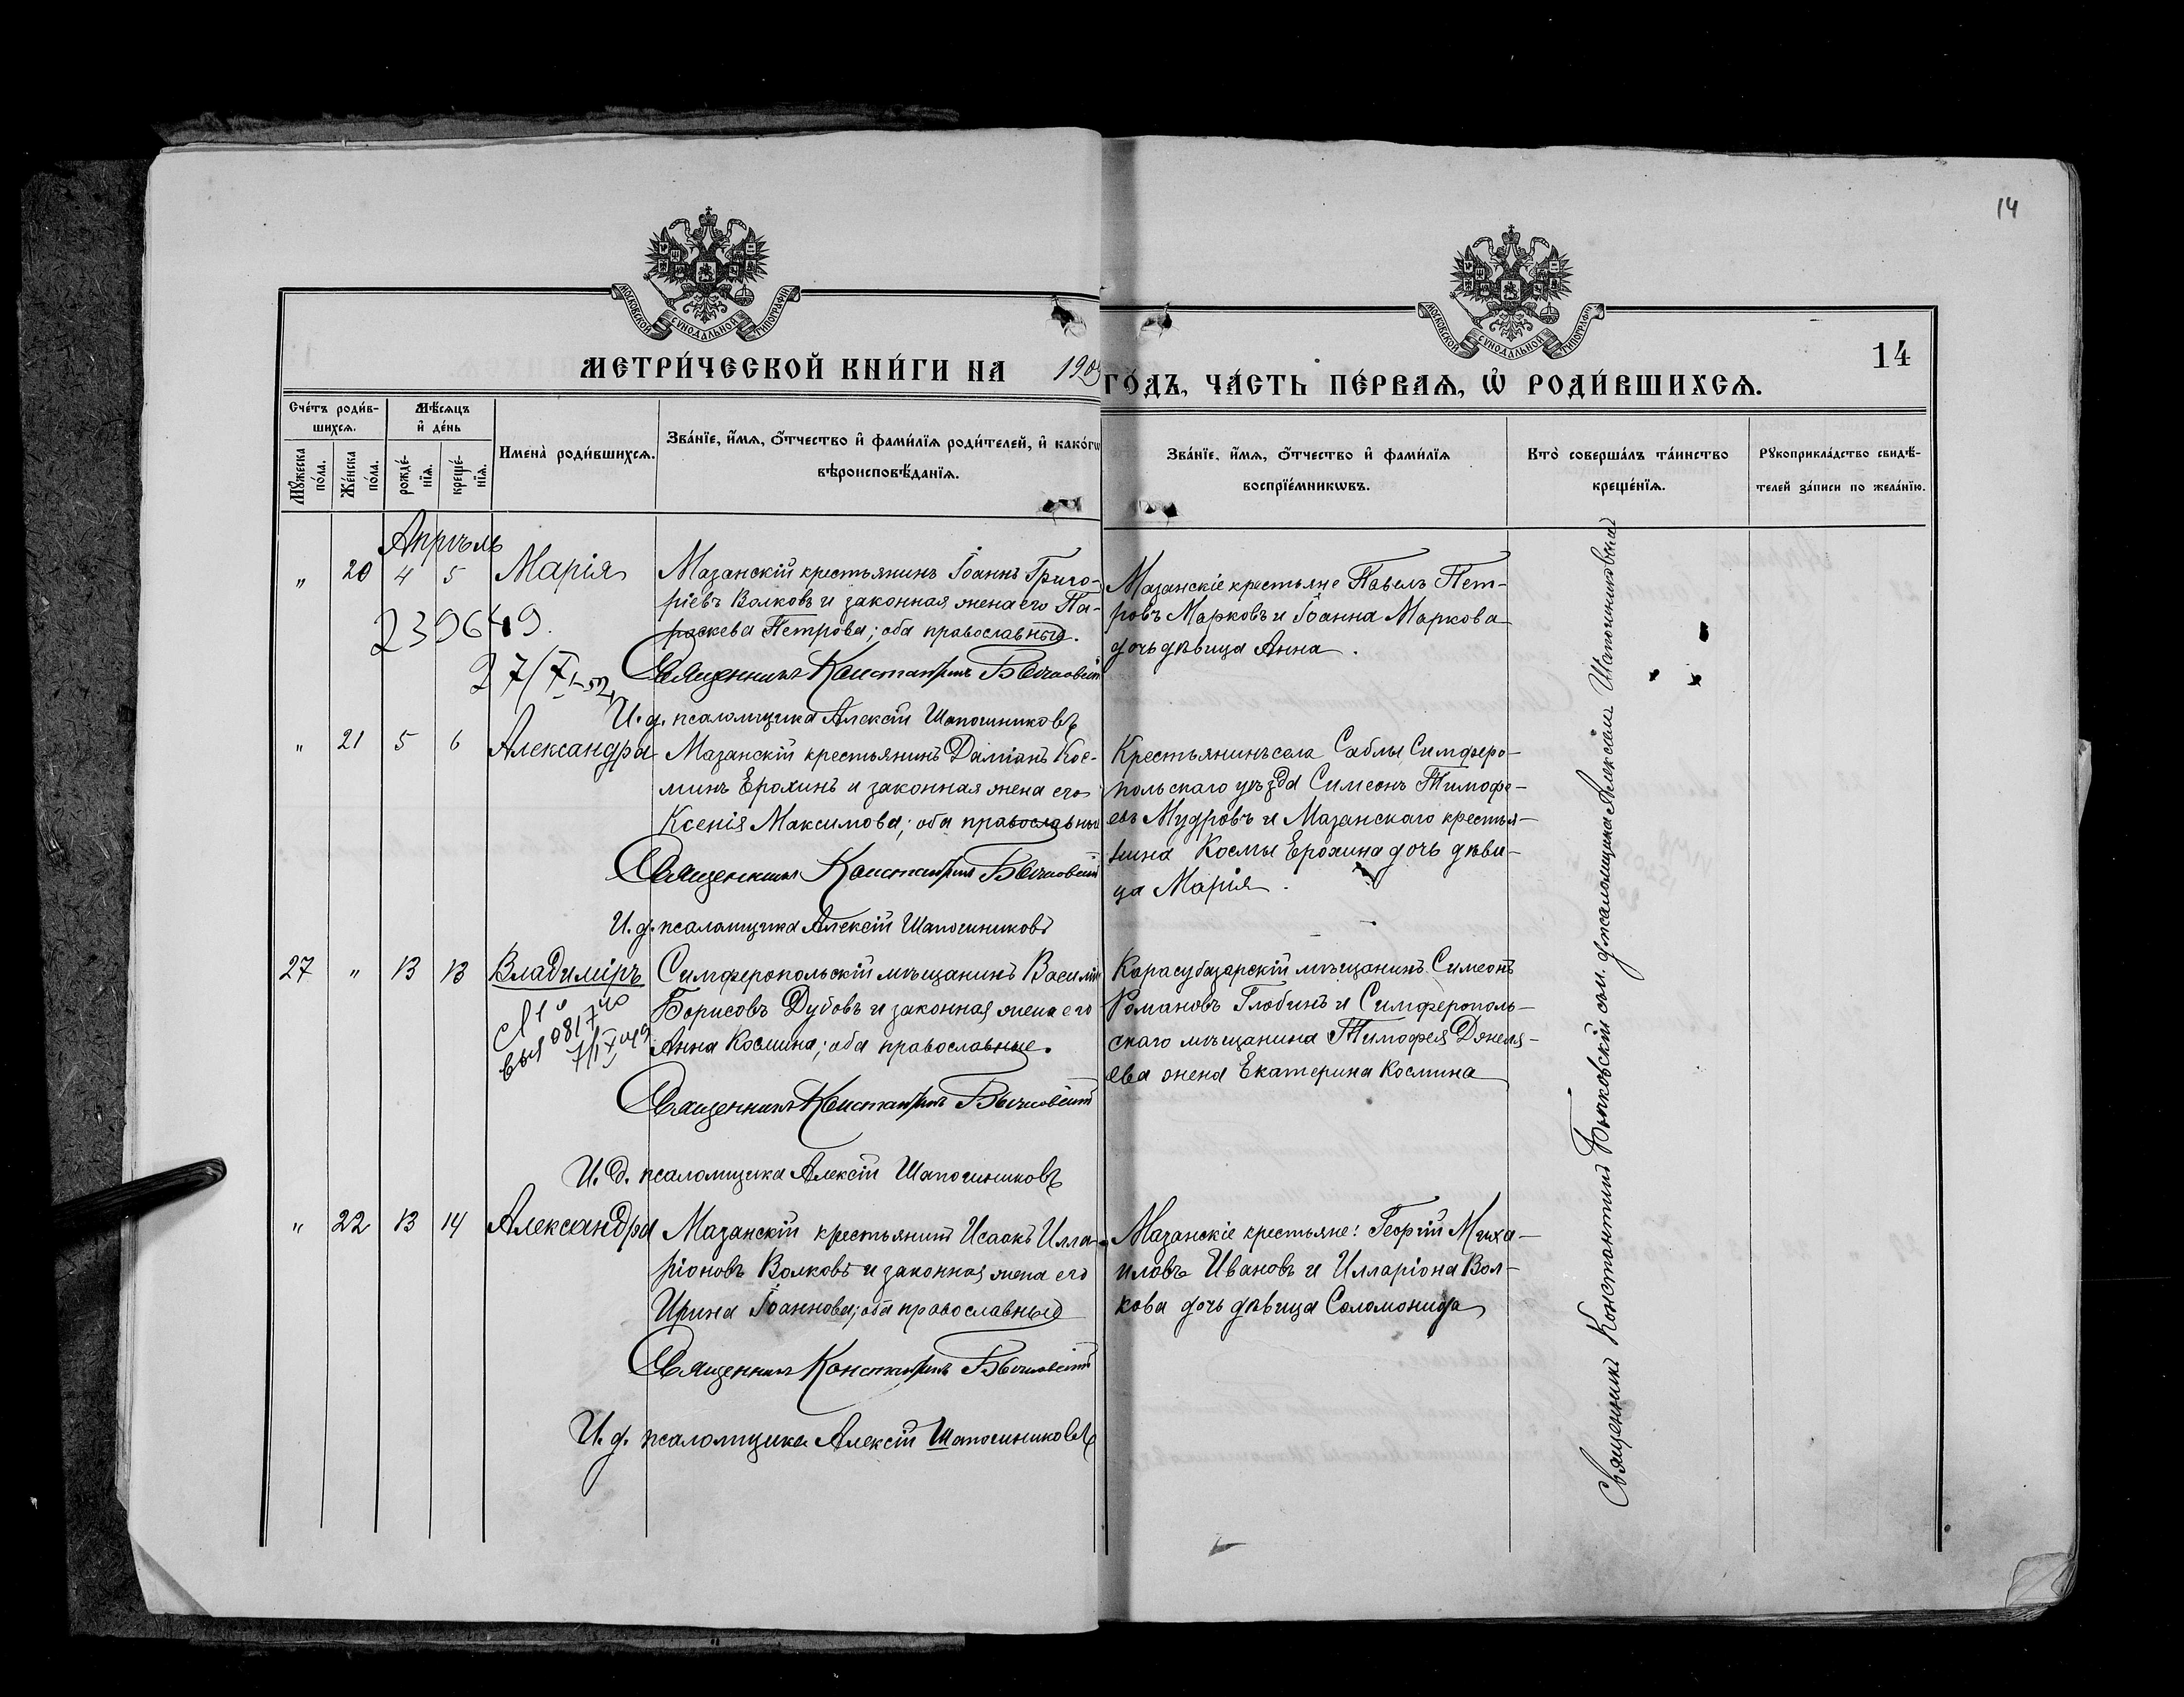 14
МОСКОВСКОЙ СѴНОДАЛЬНОЙ ТИПОГРАФІИ
МОСКОВСКОЙ СѴНОДАЛЬНОЙ ТИПОГРАФІИ
14
МЕТРИ́ЧЕСКОЙ КНИ́ГИ НА 1909 ГО́ДЪ, ЧА́СТЬ ПЕ́РВАѦ, Ѡ҆ РОДИ́ВШИХСѦ.
Сче́тъ роди́в-
шихсѧ.
Мꙋ́жеска по́ла.
Же́нска по́ла.
Мѣ́сѧцъ
и҆ де́нь
рожде́-
нїѧ.
креще́-
нїѧ.
Имена̀ роди́вшихсѧ.
Зва́нїе, и҆́мѧ, ѻ҆́тчество и҆ фами́лїѧ роди́телей, и҆ како́гѡ
вѣроисповѣ́данїѧ.
Зва́нїе, и҆́мѧ, ѻ҆́тчество и҆ фами́лїѧ
воспрїе́мникѡвъ.
Кто̀ соверша́лъ та́инство
креще́нїѧ.
Рꙋкоприкла́дство свидѣ́-
телей за́писи по жела́нїю.
Апрѣль
" 20 4 5 Марія
Мазанскій крестьянинъ Іоаннъ Григо-
ріевъ Волковъ и законная жена его Па-
раскева Петрова; оба православные.
Священникъ Константинъ Бычковскій
И. д. псаломщика Алексій Шапошниковъ
Мазанскіе крестьяне Павелъ Пет-
ровъ Марковъ и Іоанна Маркова
дочь дѣвица Анна.
" 21 5 6 Александра
Мазанскій крестьянинъ Даміанъ Кос-
минъ Ерохинъ и законная жена его
Ксенія Максимова; оба православные
Священникъ Константинъ Бычковскій
И. д. псаломщика Алексій Шапошниковъ
Крестьянинъ села Саблы Симферо-
польскаго уѣзда Симеонъ Тимофе-
евъ Мудровъ и Мазанскаго крестья-
нина Космы Ерохина дочь дѣви-
ца Марія.
27 " 13 13 Владиміръ
Симферопольскій мѣщанинъ Василій
Борисовъ Дубовъ и законная жена его
Анна Космина; оба православные.
Священникъ Константинъ Бычковскій
И. д. псаломщика Алексій Шапошниковъ
Карасубазарскій мѣщанинъ Симеонъ
Романовъ Глобинъ и Симферополь-
скаго мѣщанина Тимофея
жена Екатерина Космина
" 22 13 14 Александра
Мазанскій крестьянинъ Исаакъ Илла-
ріоновъ Волковъ и законная жена его
Ирина Іоаннова; оба православные
Священникъ Константинъ Бычковскій
И. д. псаломщика Алексій Шапошниковъ
Мазанскіе крестьяне: Георгій Миха-
иловъ Ивановъ и Илларіона Вол-
кова дочь дѣвица Соломонида
Священникъ Константинъ Бычковскій съ и. д. псаломщика Алексіемъ Шапошниковымъ